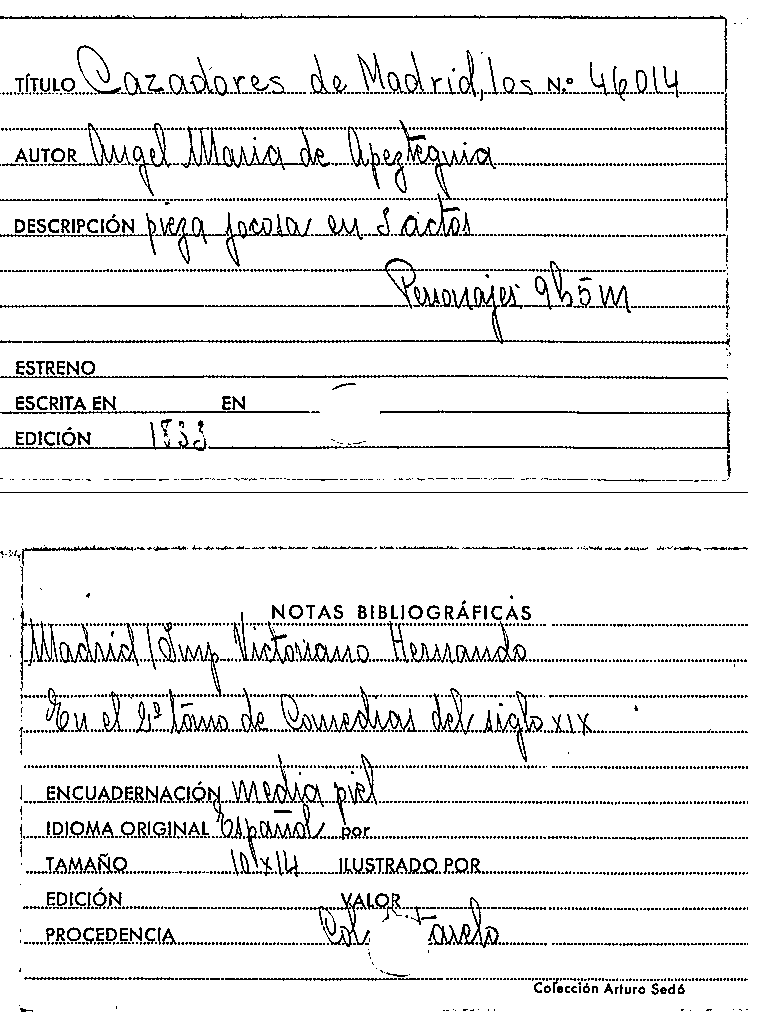 TÍTULO Cazadores de Madrid, los N.º 46014
AUTOR Angel Maria de Apezteguia
DESCRIPCIÓN pieza jocosa en 3 actos
Personajes 9h5m
ESTRENO
ESCRITA EN EN
EDICIÓN 1833
NOTAS BIBLIOGRÁFICAS
Madrid / Imp Victoriano Hernando
En el 2º tomo de Comedias del siglo XIX
ENCUADERNACIÓN media piel
IDIOMA ORIGINAL Español por
TAMAÑO 10x14 ILUSTRADO POR
EDICIÓN VALOR
PROCEDENCIA Col
Colección Arturo Sedó